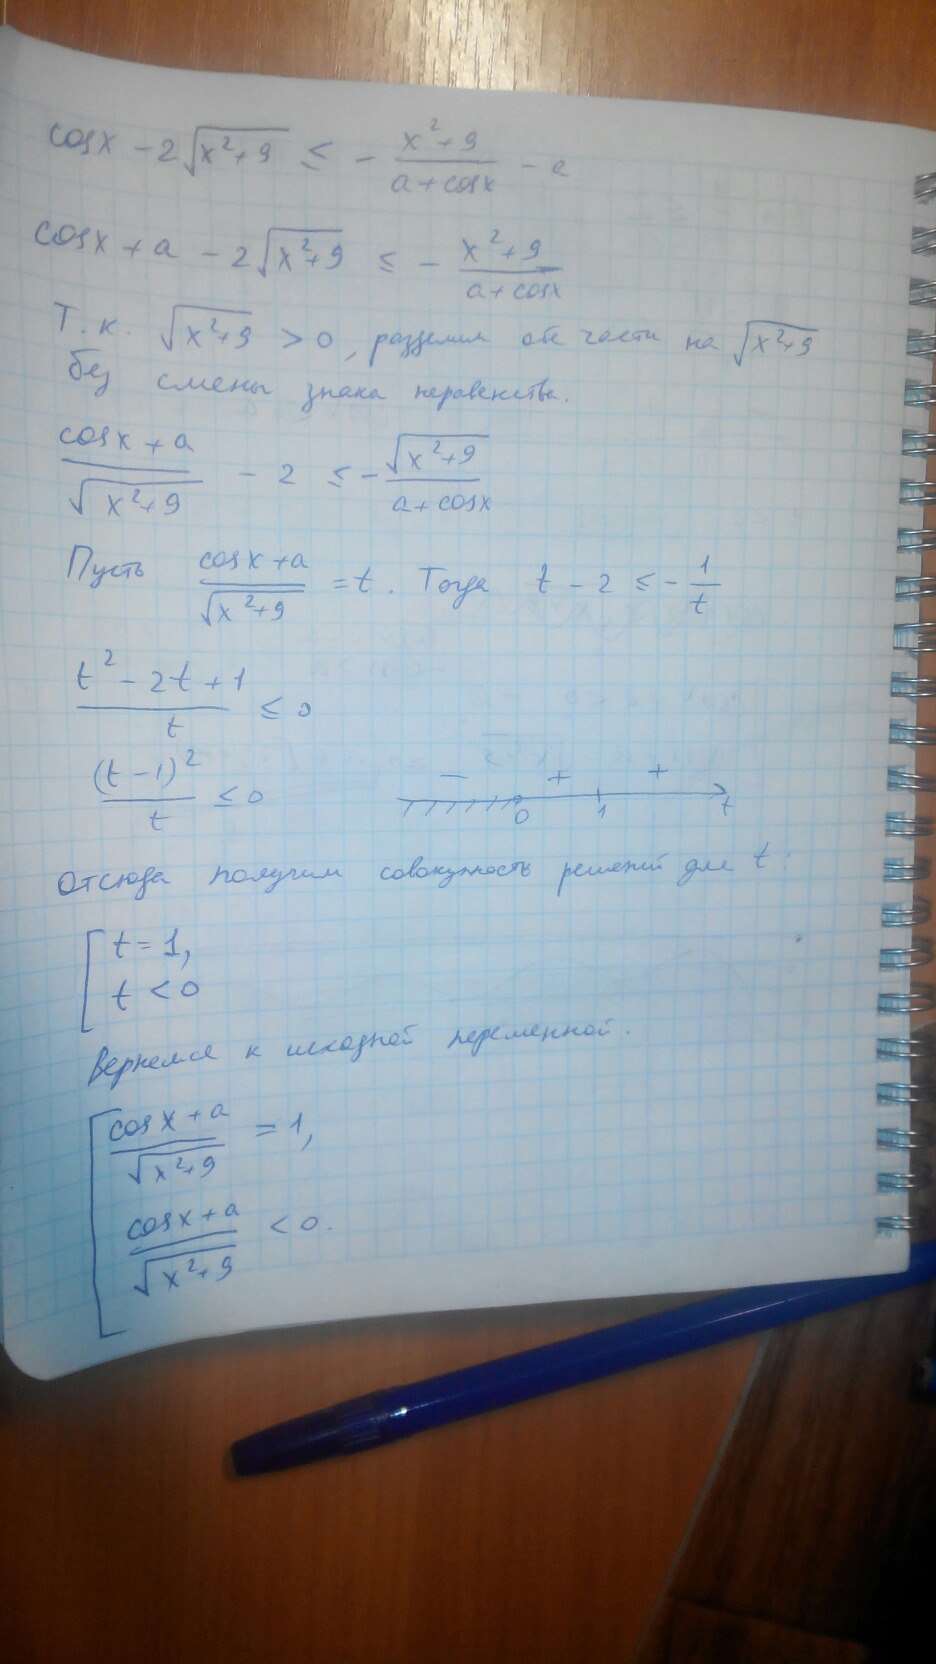 cosx - 2√(x²+9) ≤ - (x²+9)/(a+cosx) - a
cosx + a - 2√(x²+9) ≤ - (x²+9)/(a+cosx)
Т.к. √(x²+9) > 0, разделим обе части на √(x²+9)
без смены знака неравенства.
(cosx + a)/√(x²+9) - 2 ≤ - √(x²+9)/(a+cosx)
Пусть (cosx+a)/√(x²+9) = t. Тогда t - 2 ≤ - 1/t
(t² - 2t + 1)/t ≤ 0
(t-1)²/t ≤ 0 - + + 0 1 t
Отсюда получим совокупность решений для t:
[ t = 1,
t < 0
Вернемся к исходной переменной.
[ (cosx + a)/√(x²+9) = 1,
(cosx + a)/√(x²+9) < 0.